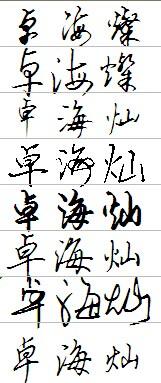 卓海燦
卓海燦
卓海灿
卓海灿
卓海灿
卓海灿
卓海灿
卓海灿